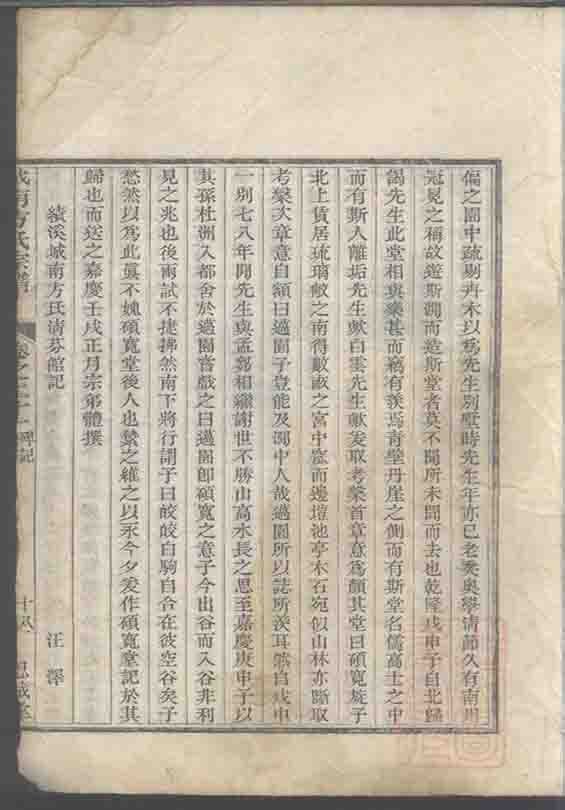 偏之園中疏剔卉木以爲先生別墅時先生年亦已老矣奥學清節久有南州
冠冕之稱故遊斯澗而造斯堂者莫不聞所未聞而去也乾隆戊申予自北歸
謁先生此堂相與樂甚而竊有羨焉爲青壁丹崖之側而有斯堂名儒高士之中
而有斯人離垢先生歟白雲先生歟爰取考槃首章意爲顏其堂曰碩寬旋予
北上賃居琉璃廠之南得數畝之宮中窪而邊塏池亭木石宛似山林亦斷取
考槃次章意自額曰薖園予豈能及澗中人哉薖園所以誌所羨耳然自戊申
一別七八年間先生與孟芻相繼謝世不勝山高水長之思至嘉慶庚申予以
其孫杜洲入都舍於薖園言戲之曰薖園即碩寬之意子今出谷而入谷非利
見之兆也後兩試不捷拂然南下將行謂予曰皎皎白駒自合在彼空谷矣予
愁然以爲此眞不媿碩寬堂後人也縶之維之以永今夕爰作碩寬堂記於其
歸也而送之嘉慶壬戌正月宗弟體撰
績溪城南方氏清芬館記
汪澤
城南方氏宗譜
卷之二十一 碑記
十八
思誠堂